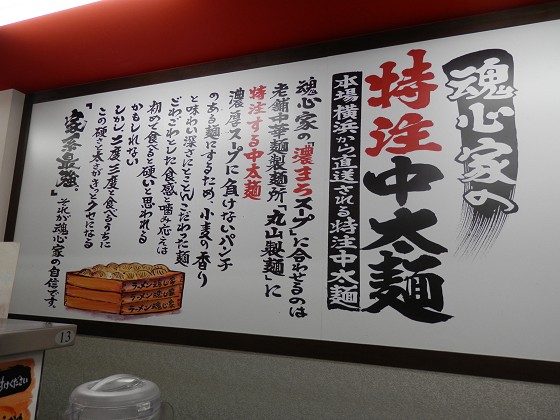 魂心家の
特注中太麺
本場横浜から直送される特注中太麺
魂心家の「濃まろスープ」に合わせるのは
老舗中華麺製麺所「丸山製麺」に
特注する中太麺
濃厚スープに負けないパンチ
のある麺にするため、小麦の香り
と味わい深さにとことんこだわった麺
ごわごわとした食感と噛み応えは
初めて食べると硬いと思われる
かもしれない
しかし、二度、三度と食べるうちに
この硬さと太さがきっとクセになる
「家系最強。」それが魂心家の自信です。
ラーメン魂心家
ラーメン魂心家
ラーメン魂心家
13
ください